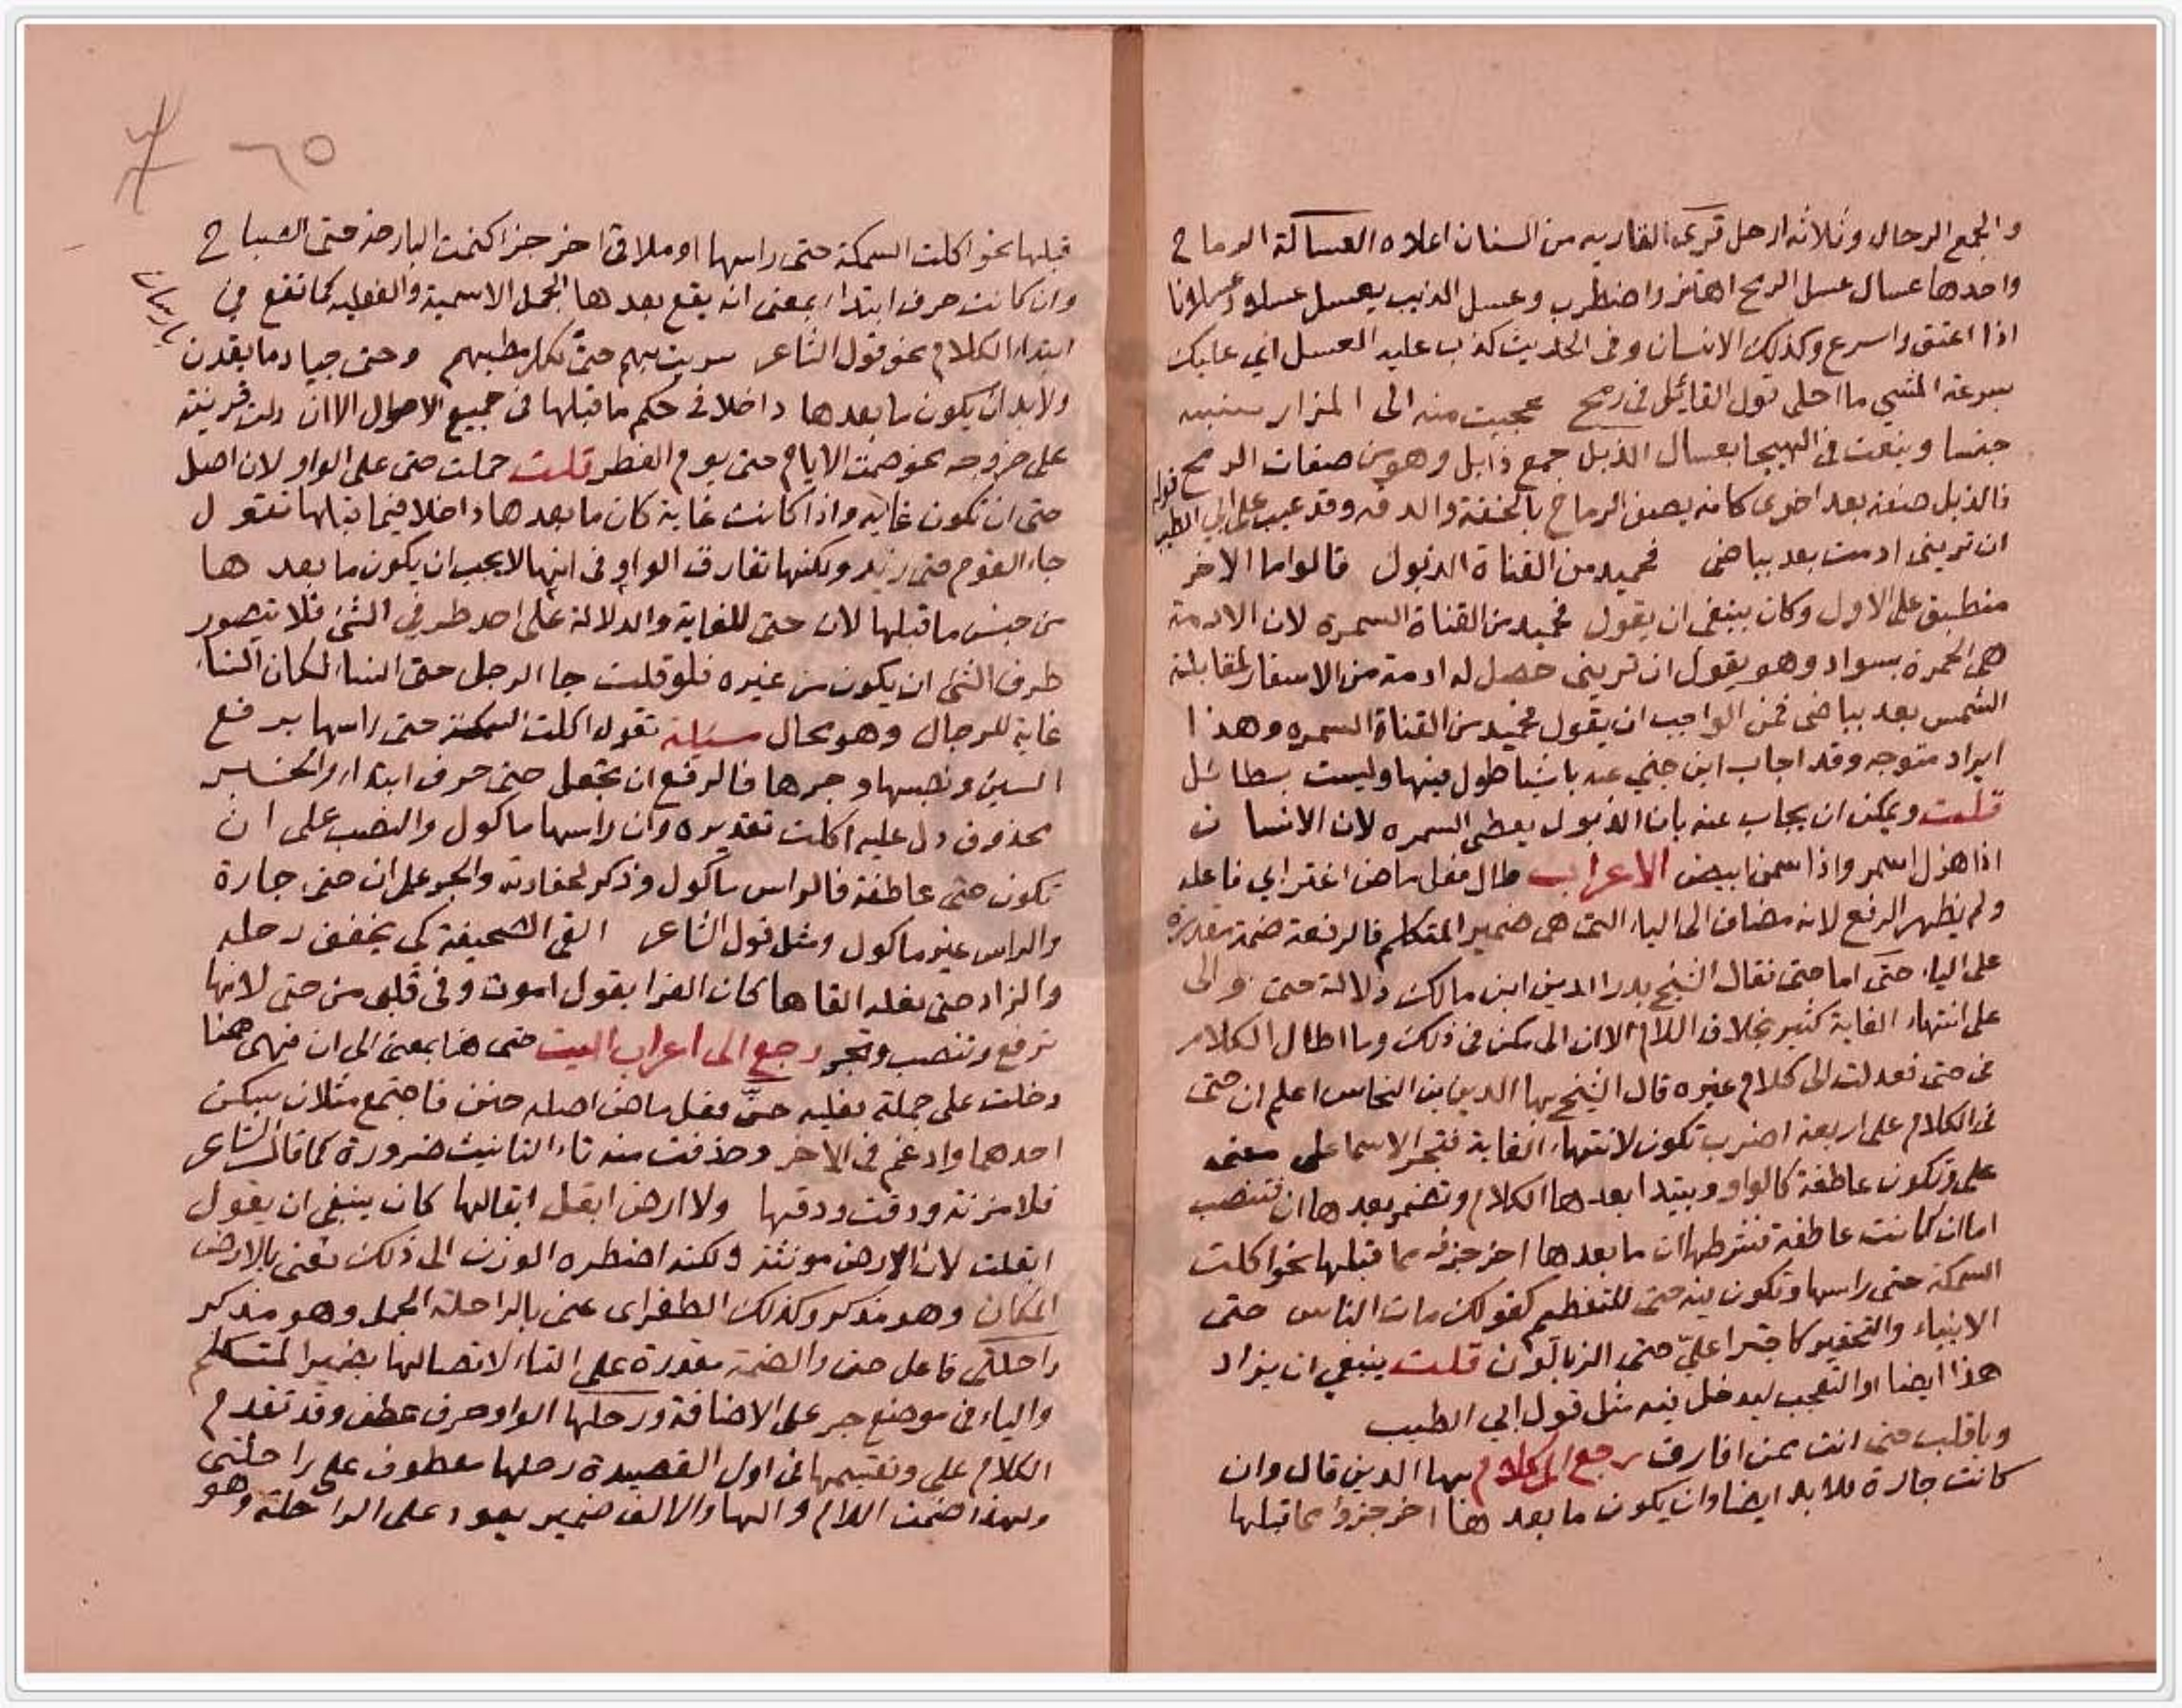 والجمع الرحال وثلاثة ارحل قرى القاريه من السنان اعلاه العسالة الرماح
واحدها عسال عسل الرمح اهتز واضطرب وعسل الذيب يعسل عسلا وعسلانا
اذا اعنق واسرع وكذلك الانسان وفى الحديث كذب عليك العسل اي عليك
بسرعة المشي ما احلى قول القائل فى رمح عجبت منه الى المزار
جنسا وينعت فى الهيجا بعسال الذبل جمع ذابل وهو من صفات الرمح
فالذبل صفة بعد اخرى كانه يصف الرماح بالخفة والدقه وقد عيب على ابي الطيب قوله
ان ترينى ادمت بعد بياض فحميد من القناة الذبول قالوا ما الاخر
منطبق على الاول وكان ينبغى ان يقول فحميد من القناة السمرة لان الادمة
هى الحمرة بسواد وهو يقول ان ترينى حصل له ادمة من الاسفار لمقابلة
الشمس بعد بياضى فمن الواجب ان يقول فحميد من القناة السمره وهذا
ايراد متوجه وقد اجاب ابن جني عنه باشيا طول فيها وليست بطائل
قلت ويمكن ان يجاب عنه بان الذبول يعطى السمره لان الانسان
اذا هزل اسمر واذا سمن ابيض الاعراب طال فعل ماض اغترابي فاعله
ولم يظهر الرفع لانه مضاف الى الياء التى هى ضمير المتكلم فالرفعة ضمة مقدرة
على الياء حتى اما حتى فقال الشيخ بدر الدين ابن مالك دلالة حتى والى
على انتهاء الغاية كثير بخلاف اللام الا ان الى امكن فى ذلك وما اطال الكلام
فى حتى فعدلت الى كلام غيره قال الشيخ بها الدين بن النحاس اعلم ان حتى
فى الكلام على اربعة اضرب تكون لانتهاء الغاية فتجر الاسما على معنى
على وتكون عاطفة كالواو ويبتدا بعدها الكلام وتضمر بعدها ان فتنصب
اما ان كانت عاطفة فشرطها ان ما بعدها اخر جزء مما قبلها نحو اكلت
السمكة حتى راسها وتكون فيه حتى للتعظيم كقولك مات الناس حتى
الانبياء والتحقير كاجترا علىّ حتى الزبالون قلت ينبغي ان يزاد
هذا ايضا او التعجب ليدخل فيه مثل قول ابي الطيب
ويا قلب حتى انت ممن افارق رجع الى كلام بها الدين قال وان
كانت جارة فلا بد ايضا وان يكون ما بعدها اخر جزؤ مما قبلها
٦٥
قبلها نحو اكلت السمكة حتى راسها او ملاقى اخر جزء كنمت البارحة حتى الصباح
وان كانت حرف ابتداء بمعنى انه يقع بعدها الجمل الاسمية والفعليه كما تقع فى
ابتداء الكلام نحو قول الشاعر سريت بهم حتى تكل مطيهم وحتى جياد ما يقدن
بارسان
ولا بد ان يكون ما بعدها داخلا فى حكم ما قبلها فى جميع الاحوال الا ان دلت قرينة
على خروجه نحو صمت الايام حتى يوم الفطر قلت حملت حتى على الواو لان اصل
حتى ان تكون غايه واذا كانت غاية كان ما بعدها داخلا فيما قبلها تقول
جاء القوم حتى زيد ولكنها تفارق الواو فى انها لا يجب ان يكون ما بعدها
من جنس ما قبلها لان حتى للغاية والدلالة على احد طرفي الشئ فلا يتصور
طرف الشئ ان يكون من غيره فلو قلت جا الرجل حتى النسا لكان النسا
غاية للرجال وهو محال مسئلة تقول اكلت السمكة حتى راسها برفع
السين ونصبها وجرها فالرفع ان تجعل حتى حرف ابتداء والخبر
محذوف دل عليه اكلت تقديره وان راسها ماكول والنصب على ان
تكون حتى عاطفة فالراس ماكول وذكر لحقارته والجر على ان حتى جارة
والراس غير ماكول ومثل قول الشاعر القى الصحيفة كي يخفف رحله
والزاد حتى نعله القاها كان الفرا يقول اموت وفى قلبى من حتى لانها
ترفع وتنصب وتجر رجع الى اعراب البيت حتى هنا بمعنى الى ان فهى هنا
دخلت على جملة فعليه حنّ فعل ماض اصله حنن فاجتمع مثلان سكن
احدهما وادغم فى الاخر وحذفت منه تاء التانيث ضرورة كما قال الشاعر
فلا مزنة ودقت ودقها ولا ارض ابقل ابقالها كان ينبغى ان يقول
ابقلت لان الارض مونثة ولكنه اضطره الوزن الى ذلك فعنى بالارض
المكان وهو مذكر وكذلك الطغراى عنى بالراحلة الجمل وهو مذكر
راحلتى فاعل حن والضمة مقدرة على التاء لاتصالها بضمير المتكلم
والياء فى موضع جر على الاضافة ورحلها الواو حرف عطف وقد تقدم
الكلام على وتقسيمها فى اول القصيدة رحلها معطوف على راحلتى
ولهذا ضمت اللام والها والالف ضمير يعود على الراحلة وهو